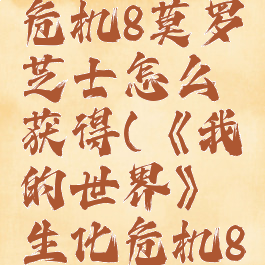 危机8莫罗
芝士怎么
获得(《我
的世界》
生化危机8